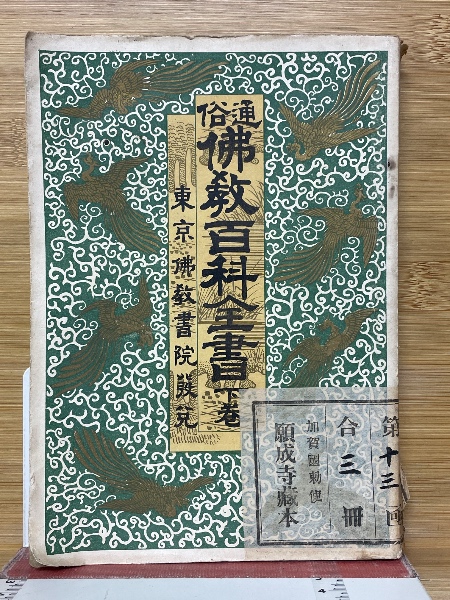 通俗
佛教百科全書下巻
東京佛教書院發兌
第十三
合三冊
加賀國勅使
願成寺藏本